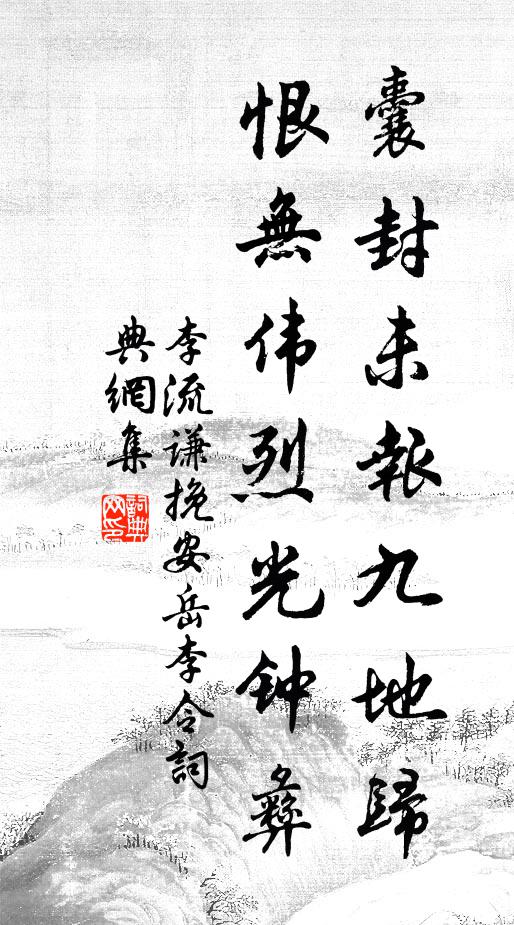 囊封未報九地歸
恨無伟烈光钟彝
李流谦挽安岳李令詞
典網集
詞典网印